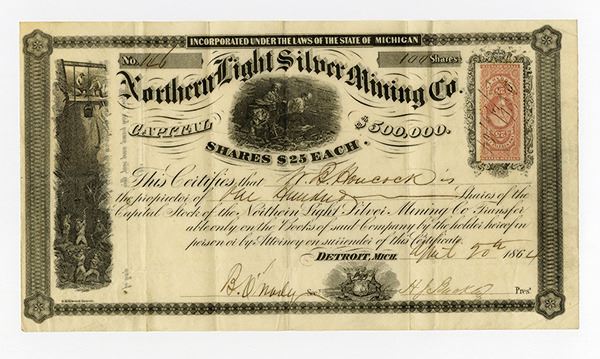 INCORPORATED UNDER THE LAWS OF THE STATE OF MICHIGAN
No. 146 100 Shares
Northern Light Silver Mining Co.
CAPITAL $500,000.
SHARES $25 EACH.
This Certifies that Hancock is
the proprietor of One Hundred Shares of the
Capital Stock of the Northern Light Silver Mining Co. Transfer
able only on the Books of said Company by the holder hereof in
person or by Attorney on surrender of this Certificate.
DETROIT, MICH. April 20th 1864
B. Secy. Prest.